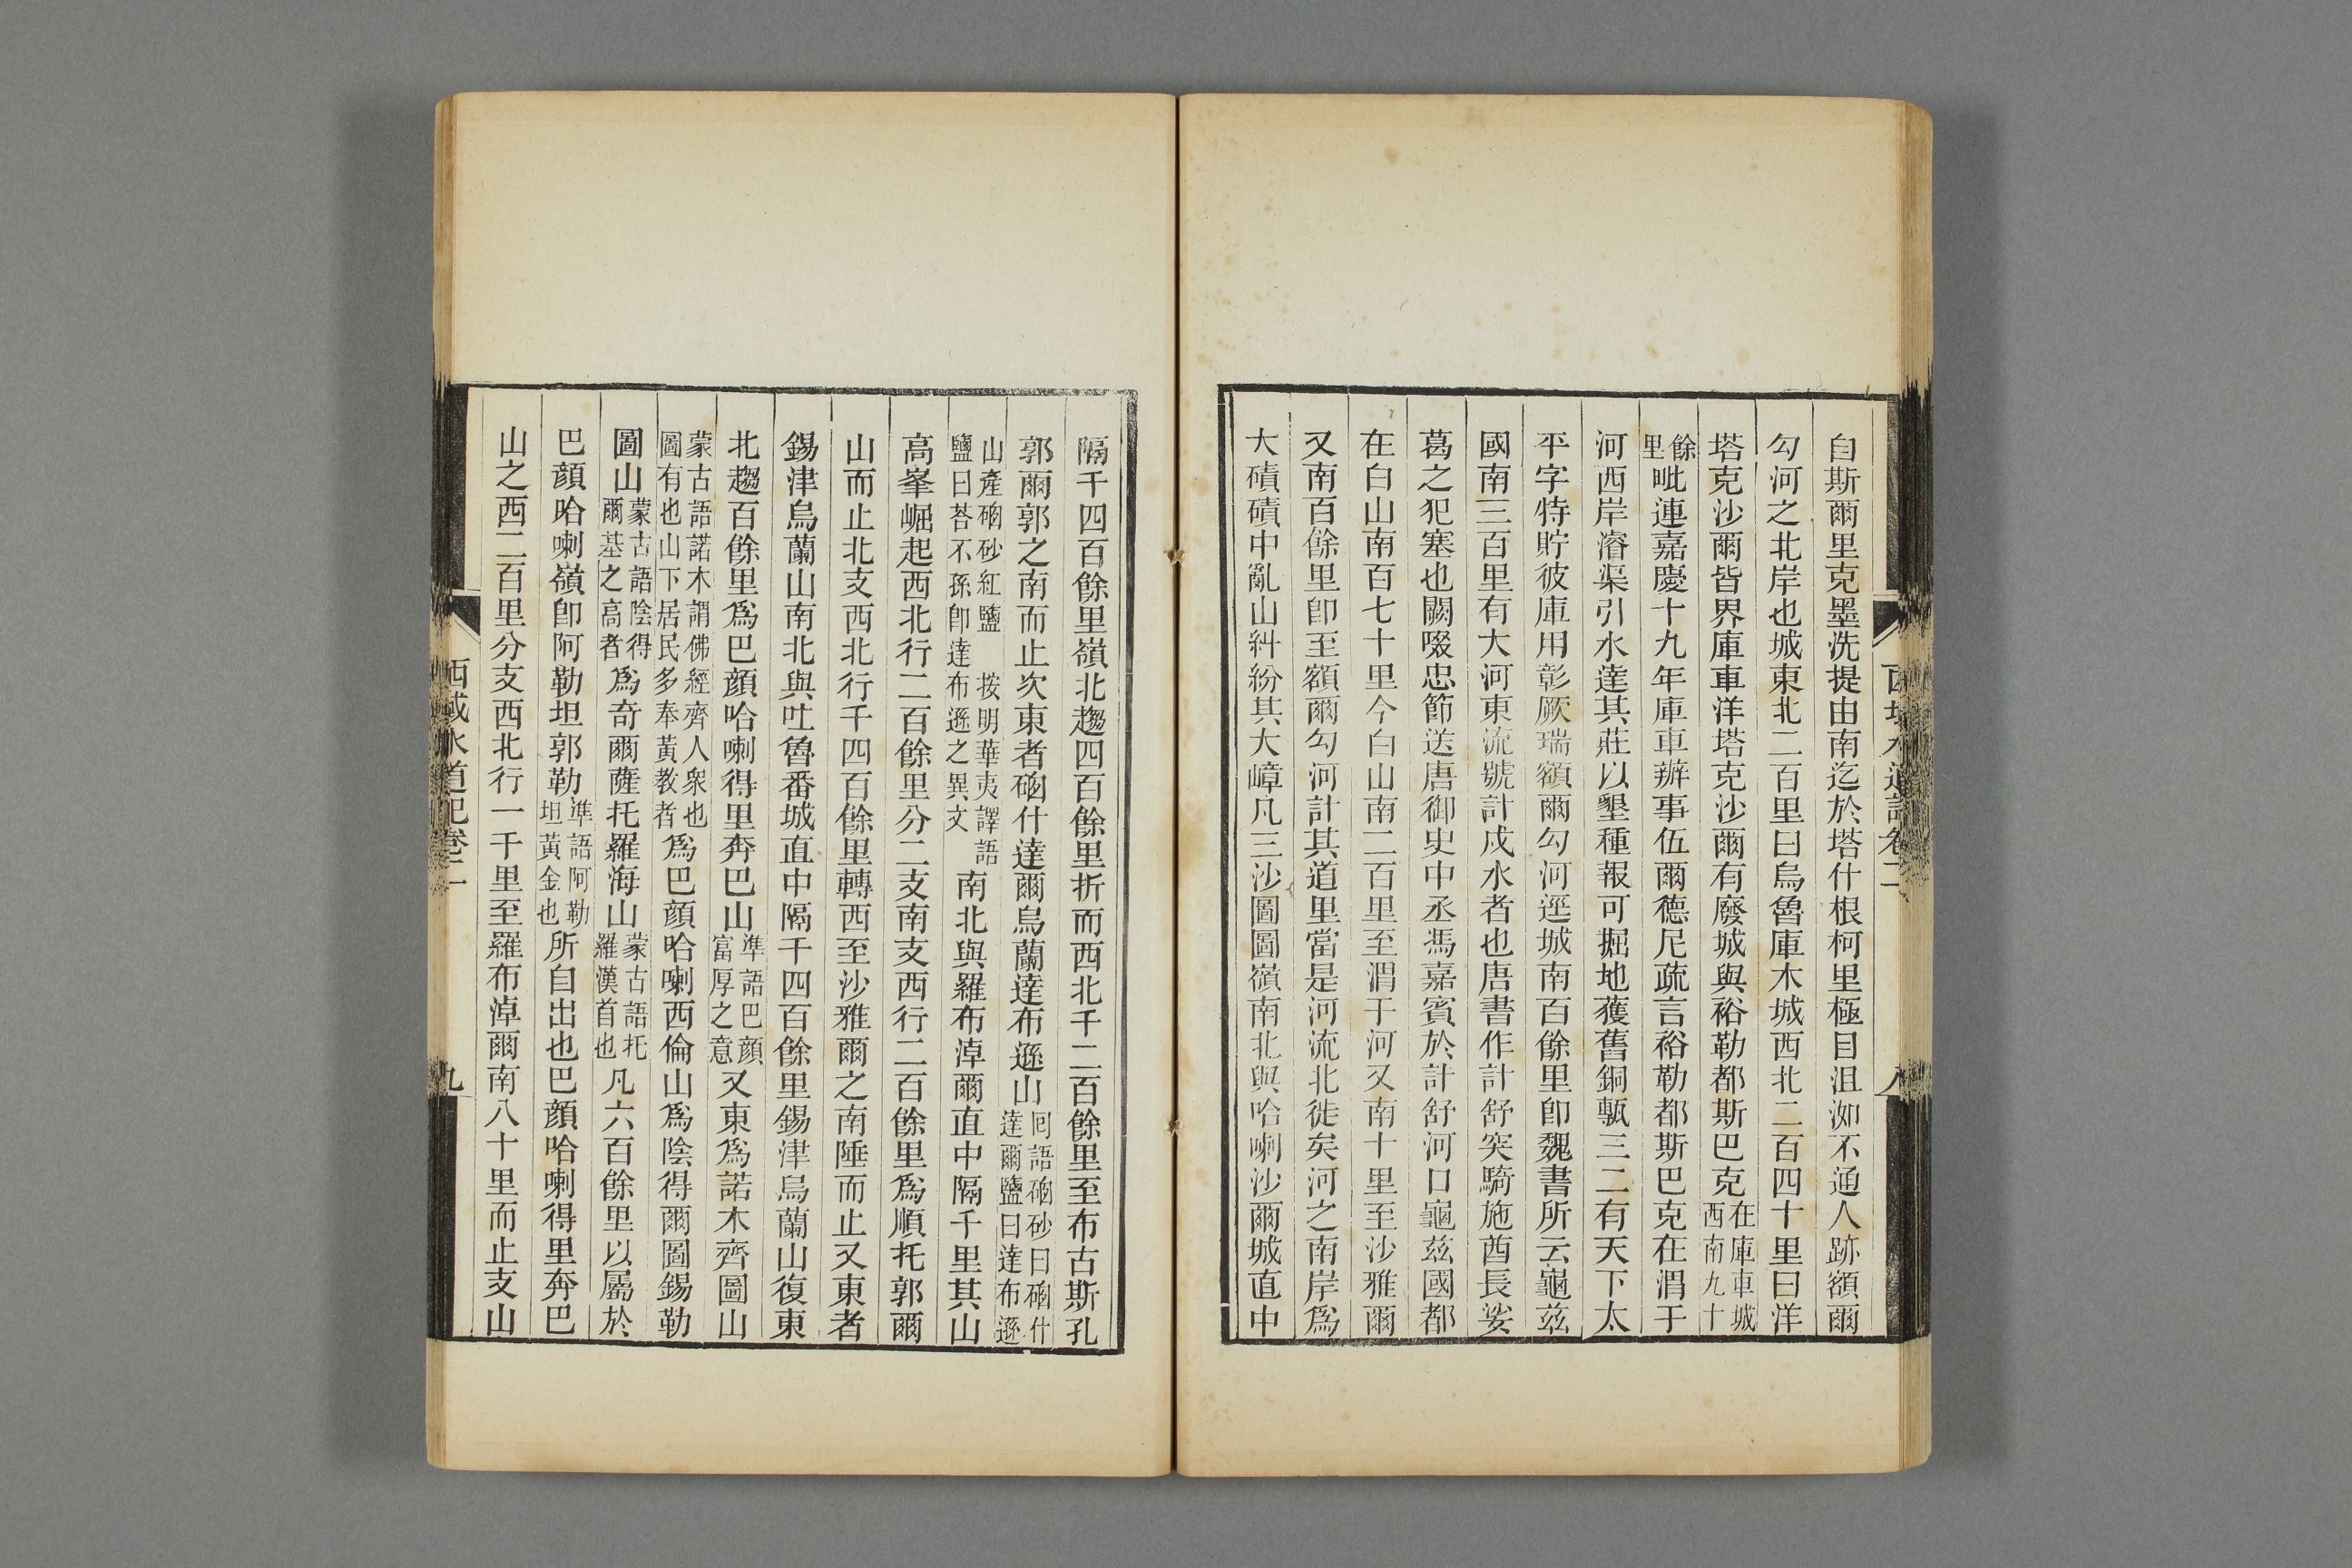 自斯爾里克墨洗提由南迄於塔什根柯里極目沮洳不通人跡額爾
勾河之北岸也城東北二百里曰烏魯庫木城西北二百四十里曰洋
塔克沙爾皆界庫車洋塔克沙爾有廢城與裕勒都斯巴克在庫車城西南九十
餘里毗連嘉慶十九年庫車辦事伍爾德尼疏言裕勒都斯巴克在渭于
河西岸濬渠引水達其莊以墾種報可掘地獲舊銅甎三二有天下太
平字特貯彼庫用彰厥瑞額爾勾河逕城南百餘里卽魏書所云龜茲
國南三百里有大河東流號計戍水者也唐書作計舒突騎施酋長娑
葛之犯塞也闕啜忠節送唐御史中丞馮嘉賓於計舒河口龜茲國都
在白山南百七十里今白山南二百里至渭于河又南十里至沙雅爾
又南百餘里卽至額爾勾河計其道里當是河流北徙矣河之南岸爲
大磧磧中亂山糾紛其大嶂凡三沙圖圖嶺南北與哈喇沙爾城直中
隔千四百餘里嶺北趨四百餘里折而西北千二百餘里至布古斯孔
郭爾郭之南而止次東者硇什達爾烏蘭達布遜山回語硇砂曰硇什達爾鹽曰達布遜
山產硇砂紅鹽 按明華夷譯語鹽曰荅不孫卽達布遜之異文南北與羅布淖爾直中隔千里其山
高峯崛起西北行二百餘里分二支南支西行二百餘里爲順托郭爾
山而止北支西北行千四百餘里轉西至沙雅爾之南陲而止又東者
錫津烏蘭山南北與吐魯番城直中隔千四百餘里錫津烏蘭山復東
北趨百餘里爲巴顔哈喇得里奔巴山準語巴顔富厚之意又東爲諾木齊圖山
蒙古語諾木謂佛經齊人衆也圖有也山下居民多奉黃教者爲巴顔哈喇西倫山爲陰得爾圖錫勒
圖山蒙古語陰得爾基之高者爲奇爾薩托羅海山蒙古語托羅漢首也凡六百餘里以屬於
巴顔哈喇嶺卽阿勒坦郭勒準語阿勒坦黃金也所自出也巴顔哈喇得里奔巴
山之西二百里分支西北行一千里至羅布淖爾南八十里而止支山
西域水道記卷二
九